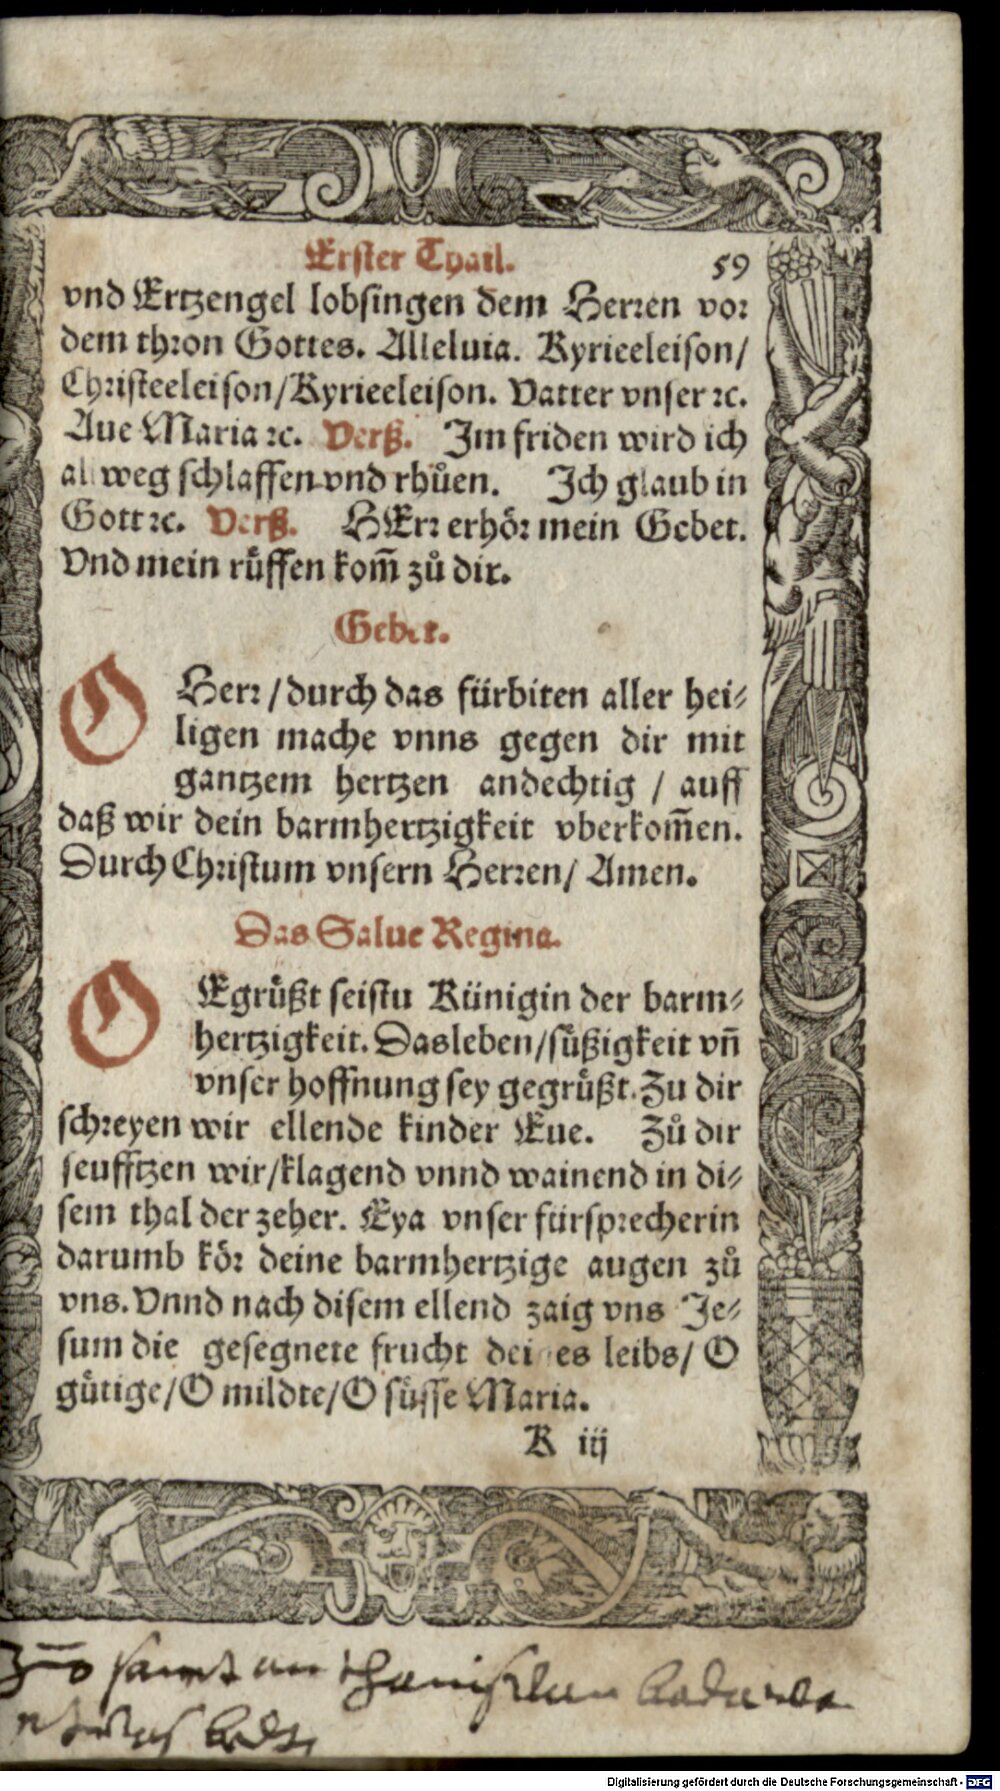 Erster Thail. 59
vnd Ertzengel lobsingen dem Herren vor
dem thron Gottes. Alleluia. Kyrieeleison/
Christeeleison/Kyrieeleison. Vatter vnser ꝛc.
Aue Maria ꝛc. Verß. Im friden wird ich
allweg schlaffen vnd rhůen. Ich glaub in
Gott ꝛc. Verß. HErr erhör mein Gebet.
Vnd mein rüffen kom̃ zů dir.
Gebet.
O Herr/durch das fürbiten aller hei⸗
ligen mache vnns gegen dir mit
gantzem hertzen andechtig / auff
daß wir dein barmhertzigkeit vberkom̃en.
Durch Christum vnsern Herren/ Amen.
Das Salue Regina.
O Egrüßt seistu Künigin der barm⸗
hertzigkeit. Das leben/süßigkeit vñ
vnser hoffnung sey gegrüßt. Zu dir
schreyen wir ellende kinder Eue. Zů dir
seufftzen wir/klagend vnnd wainend in di⸗
sem thal der zeher. Eya vnser fürsprecherin
darumb kör deine barmhertzige augen zů
vns. Vnnd nach disem ellend zaig vns Je⸗
sum die gesegnete frucht deines leibs/ O
gütige/O mildte/O süsse Maria.
K iij
Digitalisierung gefördert durch die Deutsche Forschungsgemeinschaft - DFG